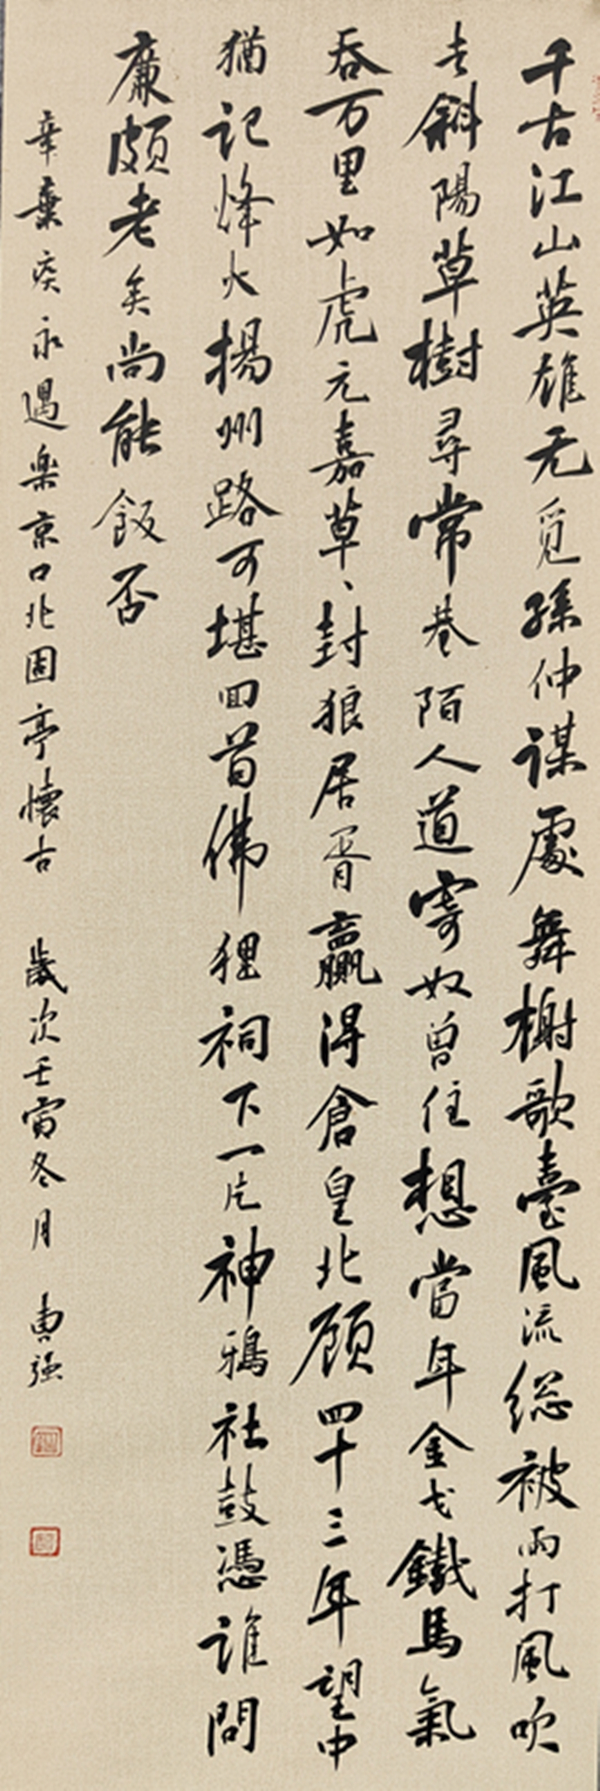 千古江山英雄无觅孫仲謀處舞榭歌臺風流総被雨打風吹
去斜陽草樹尋常巷陌人道寄奴曾住想當年金戈鐵馬氣
吞万里如虎元嘉草〻封狼居胥贏得倉皇北顧四十三年望中
猶記烽火揚州路可堪回首佛狸祠下一片神鴉社鼓憑誰問
廉頗老矣尚能飯否
辛棄疾永遇楽京口北固亭懷古 歲次壬寅冬月 曲强